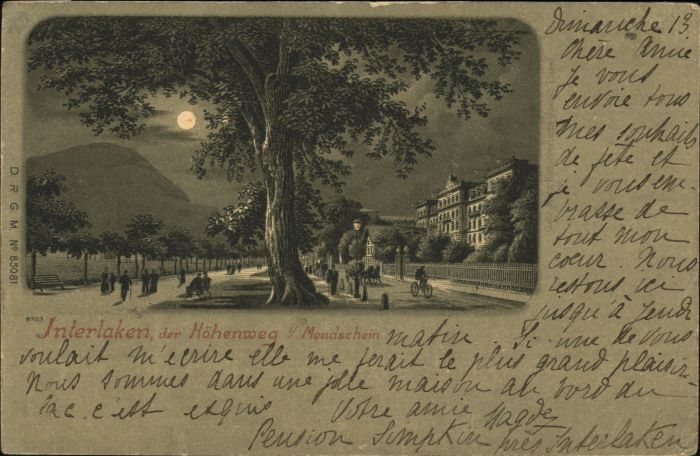 Dimanche 13
chère Amie
je vous
envoie tous
mes souhaits
de fête et
je vous em
brasse de
tout mon
coeur. Nous
restons ici
jusqu'à jeudi
matin. Si une de vous
voulait m'ecrire elle me ferait le plus grand plaisir
Nous sommes dans une jolie maison au bord du
lac. c'est exquis Votre amie Magde
Pension Simpkin près Interlaken
D. R. G. M. No 85081
8703
Interlaken, der Höhenweg i/ Mondschein